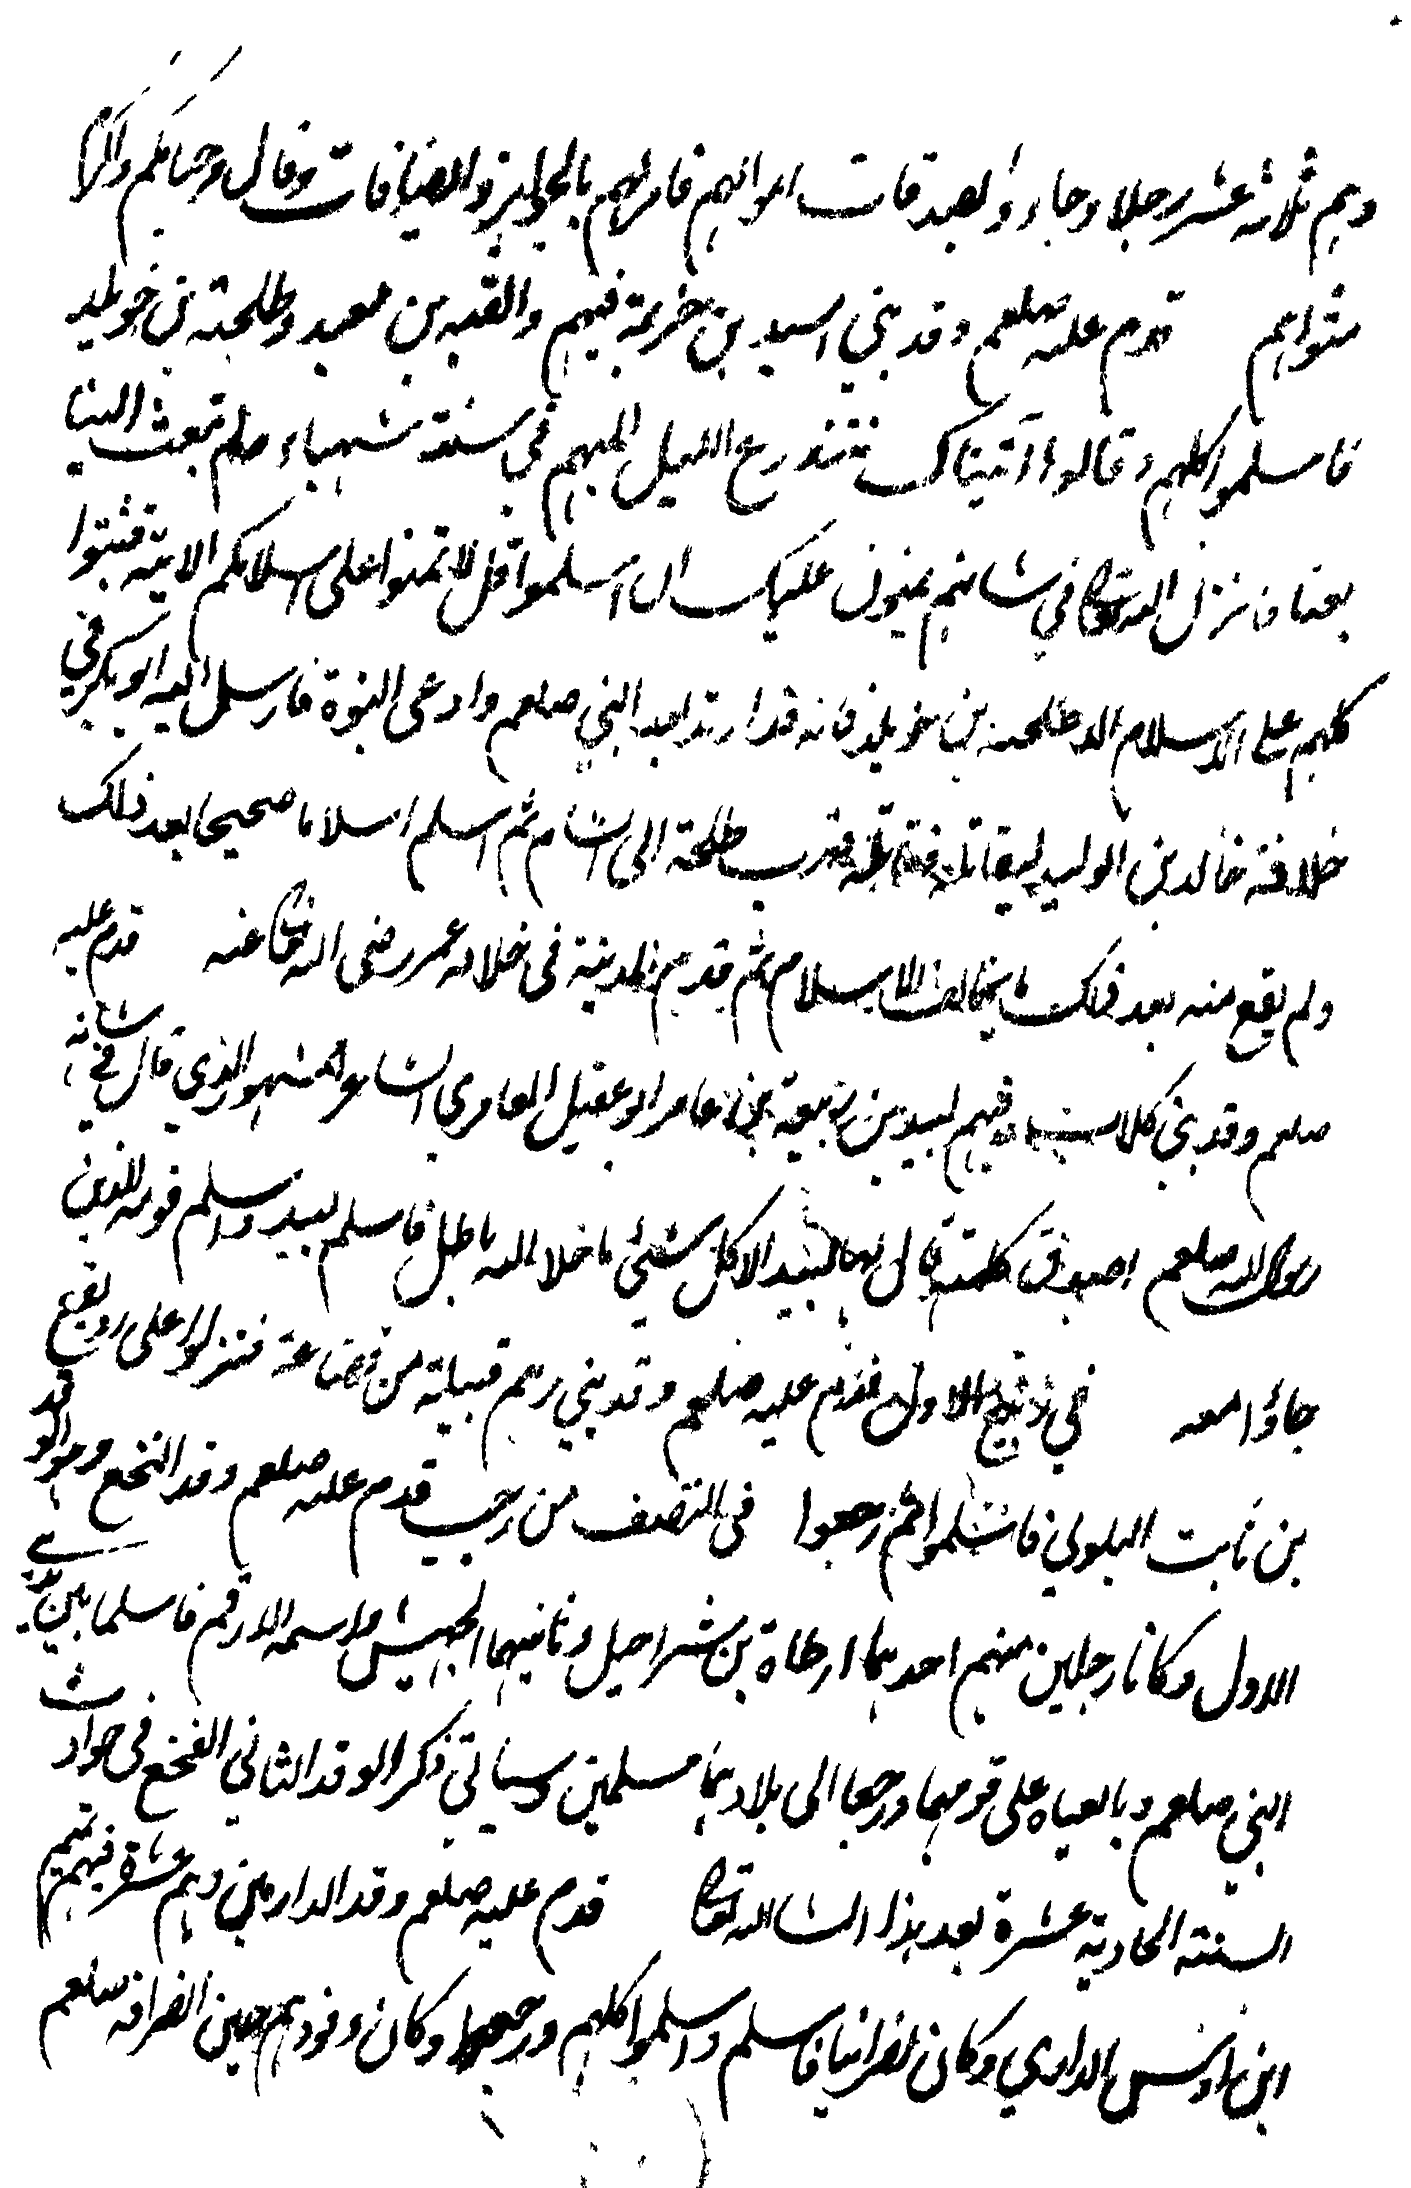 وهم ثلاثة عشر رجلا وجاءوا بصدقات اموالهم فامر لهم بالجوايز والضيافات وقال وحياكم واكرم
مثواهم قدم عليه صلعم وفد بني اسد بن خزيمة فيهم والقبه بن معبد وطلحة بن خويلد
فاسلموا كلهم وقالوا أتيناك نتذرع الليل البهيم في سنة شهباء ولم تبعث الينا
بعثا فانزل الله تعالى في شانهم يمنون عليك ان اسلموا قل لا تمنوا على اسلامكم الاية فثبتوا
كلهم على الاسلام الا طلحة بن خويلد فانه قد ارتد بعد النبي صلعم وادعى النبوة فارسل اليه ابو بكر في
خلافته خالد بن الوليد ليقاتله فقاتله فهرب طلحة الى الشام ثم اسلم اسلاما صحيحا بعد ذلك
ولم يقع منه بعد ذلك ما يخالف الاسلام ثم قدم المدينة في خلافة عمر رضى الله تعالى عنه قدم عليه
صلعم وفد بني كلاب وفيهم لبيد بن ربيعة بن عامر ابو عقيل العامري الشاعر المشهور الذي قال في شانه
رسول الله صلعم اصدق كلمة قالها لبيد الا كل شئ ما خلا الله باطل فاسلم لبيد واسلم قومه الذين
جاؤا معه في ربيع الاول قدم عليه صلعم وفد بني رهم قبيلة من قضاعة فنزلوا على رويفع
بن ثابت البلوي فاسلموا ثم رجعوا في النصف من رجب قدم عليه صلعم وفد النخع وهو الوفد
الاول وكانا رجلين منهم احدهما ارطاة بن شراحيل وثانيهما الجهيش واسمه الارقم فاسلما بين يدي
النبي صلعم وبايعاه على قومهما ورجعا الى بلادهما مسلمين وسياتي ذكر الوفد الثاني النخع في حوادث
السنة الحادية عشرة بعد هذا انشا الله تعالى قدم عليه صلعم وفد الداريين وهم عشرة فيهم تميم
ابن اوس الداري وكان نصرانيا فاسلم واسلموا كلهم ورجعوا وكان وفودهم حين انصرافه صلعم